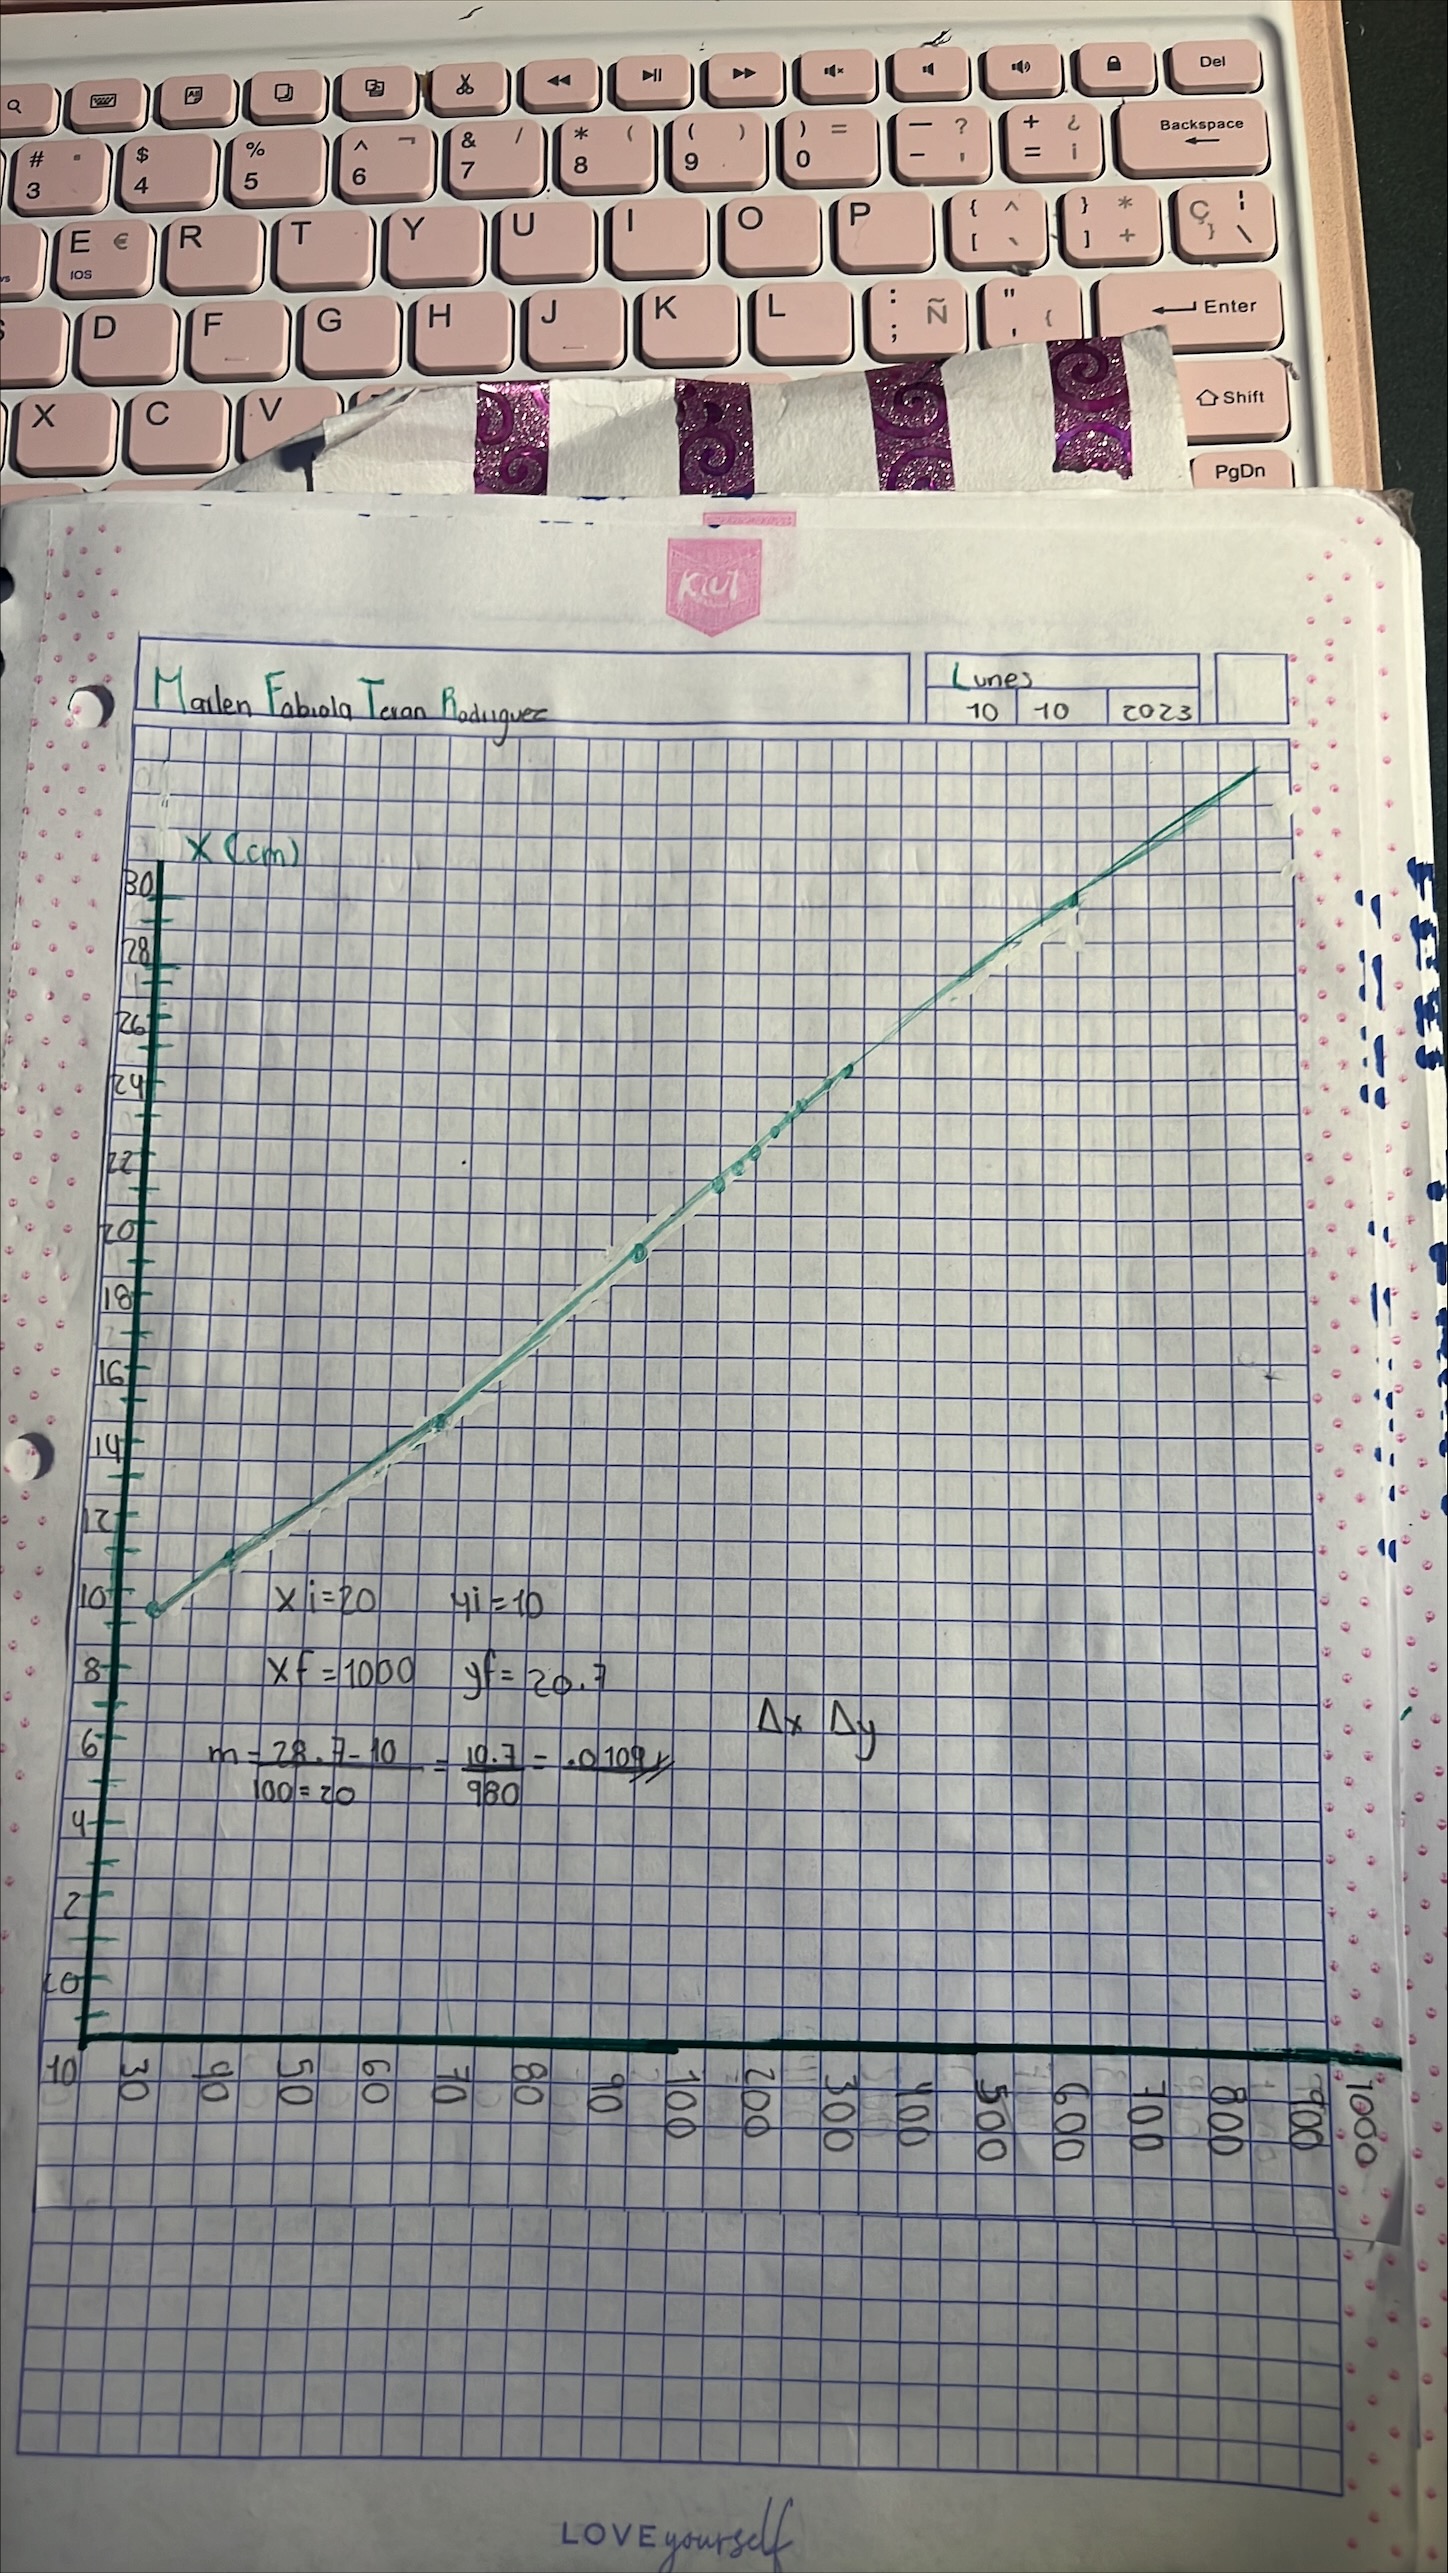 Del
# 3
$ 4
% 5
^ ¬ 6
& / 7
* ( 8
( ) 9
) = 0
— ? - '
+ ¿ = ¡
Backspace
E €
IOS
R
T
Y
U
I
O
P
{ ^ [ `
} * ] +
Ç ¦ } \
D
F
G
H
J
K
L
: ; Ñ
" , {
Enter
X
C
V
Shift
PgDn
KIUT
Marlen Fabiola Teran Rodriguez
Lunes
10 10 2023
X (cm)
30
28
26
24
22
20
18
16
14
12
10
xi=20 yi=10
8
xf=1000 yf=20.7
Δx Δy
6
m=28.7-10 = 10.7 = .0109
100=20 980
4
2
10 30 40 50 60 70 80 90 100 200 300 400 500 600 700 800 900 1000
LOVE yourself